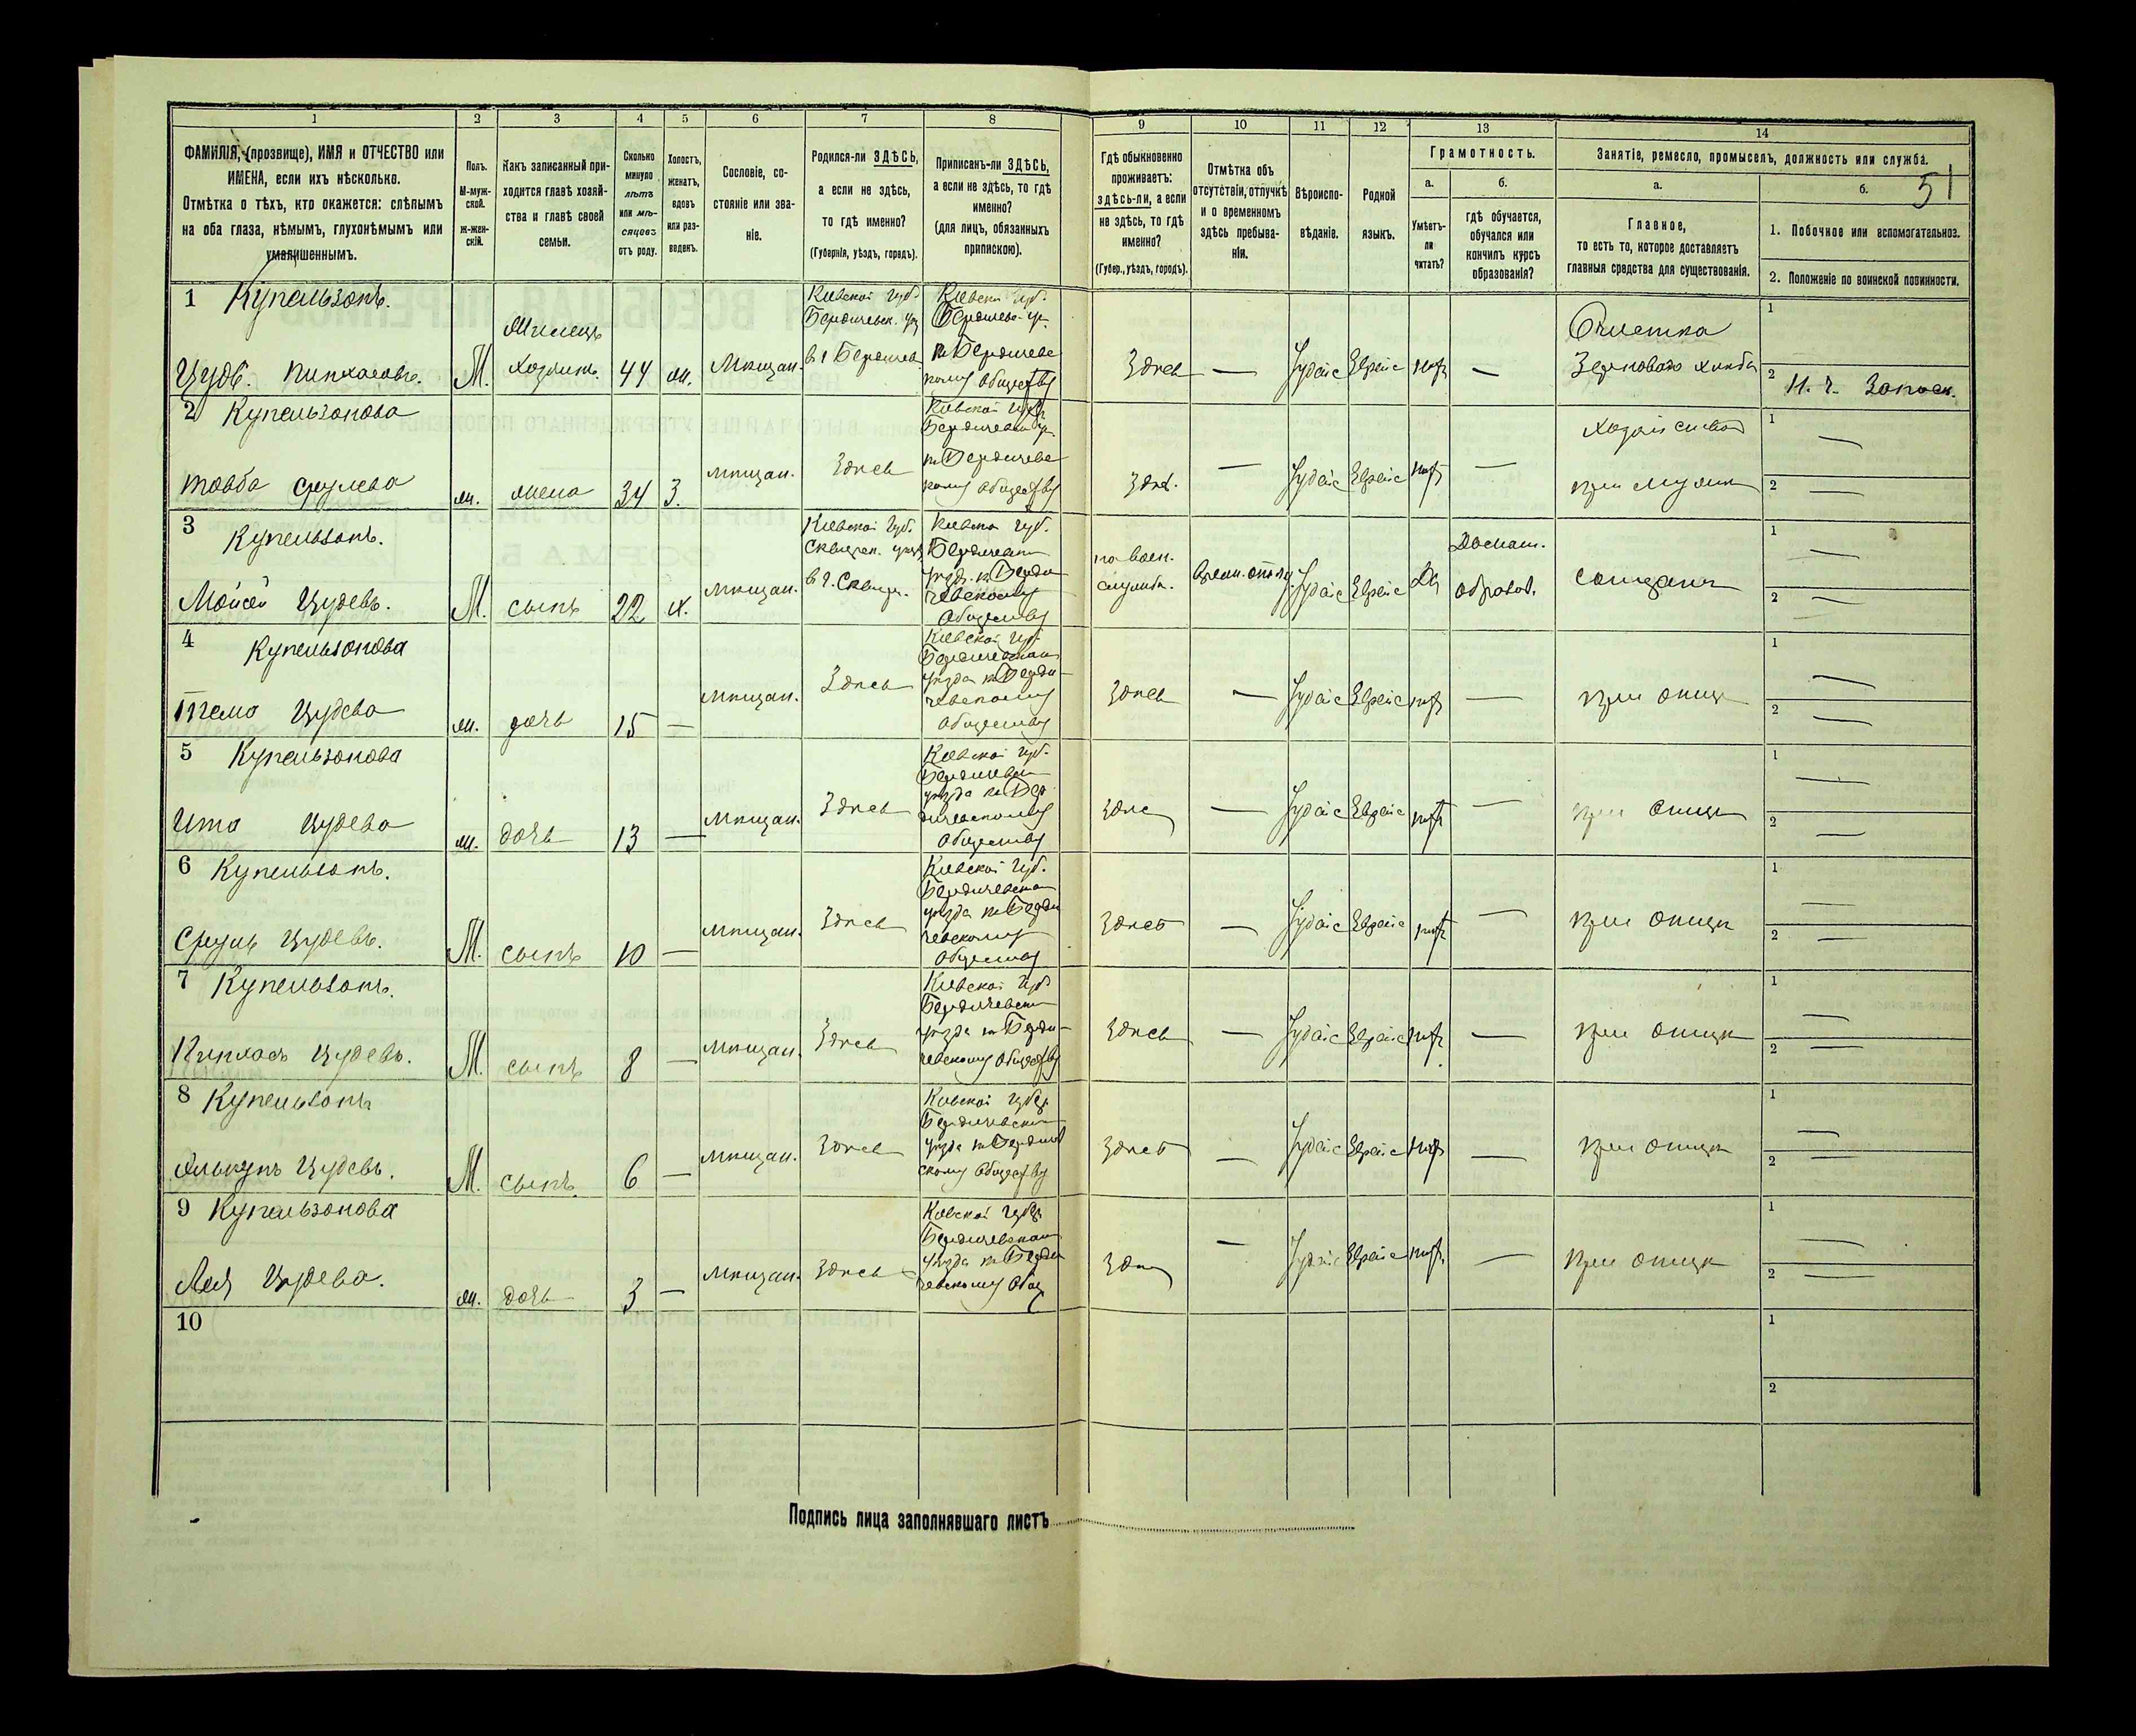 1 2 3 4 5 6 7 8 9 10 11 12 13 14
ФАМИЛІЯ, (прозвище), ИМЯ и ОТЧЕСТВО или
ИМЕНА, если ихъ нѣсколько.
Отмѣтка о тѣхъ, кто окажется: слѣпымъ
на оба глаза, нѣмымъ, глухонѣмымъ или
умалишеннымъ.
Полъ.
М-муж-
ской.
Ж-жен-
скій.
Какъ записанный при-
ходится главѣ хозяй-
ства и главѣ своей
семьи.
Сколько
минуло
лѣтъ
или мѣ-
сяцевъ
отъ роду.
Холостъ,
женатъ,
вдовъ
или раз-
веденъ.
Сословіе, со-
стояніе или зва-
ніе.
Родился-ли ЗДѢСЬ,
а если не здѣсь,
то гдѣ именно?
(Губернія, уѣздъ, городъ).
Приписанъ-ли ЗДѢСЬ,
а если не здѣсь, то гдѣ
именно?
(для лицъ, обязанныхъ
припискою).
Гдѣ обыкновенно
проживаетъ:
здѣсь-ли, а если
не здѣсь, то гдѣ
именно?
(Губер., уѣздъ, городъ).
Отмѣтка объ
отсутствіи, отлучкѣ
и о временномъ
здѣсь пребыва-
ніи.
Вѣроиспо-
вѣданіе.
Родной
языкъ.
Грамотность.
а.
Умѣетъ-
ли
читать?
б.
гдѣ обучается,
обучался или
кончилъ курсъ
образованія?
Занятіе, ремесло, промыселъ, должность или служба.
а.
Главное,
то есть то, которое доставляетъ
главныя средства для существованія.
б.
51
1. Побочное или вспомогательное.
2. Положеніе по воинской повинности.
1 Купельзонъ.
Цудъ. Пинхасовъ. М. Хозяинъ. 44 Мѣщан.
Кіевской Губ.
Бердичевск.
Кіевской Губ.
Здѣсь — Іудейс Еврейс нѣтъ —
Очистка
Зерноваго хлѣба
1
2
2 Купельзонова
Товба Срулева ж. жена 34 З. Мѣщан. Здѣсь
Кіевской Губ.
Здѣс. — Іудейс Еврейс нѣтъ —
Хозяйство
при мужѣ
1 —
2 —
3 Купельзонъ.
Мойсей Цудевъ. М. сынъ 22 х. Мѣщан.
Кіевской Губ.
Сквирск.
в г. Сквир.
Кіевской Губ.
Обществу
на воен.
службѣ.
Іудейс Еврейс Да
Домаш.
образов.
солдатъ
1 —
2 —
4 Купельзонова
Тема Цудева ж. дочь 15 — Мѣщан. Здѣсь
Кіевской Губ.
Бердичевскаго
уѣзда къ Берди-
чевскому
Обществу
Здѣсь — Іудейс Еврейс нѣтъ —
при отцѣ
1 —
2 —
5 Купельзонова
Ита Цудева ж. дочь 13 — Мѣщан. Здѣсь
Кіевской Губ.
Бердичевск
уѣзда къ Бер
дичевскому
Обществу
Здѣс — Іудейс Еврейс нѣтъ —
при отцѣ
1 —
2 —
6 Купельзонъ.
Сруль Цудевъ. М. сынъ 10 — Мѣщан. Здѣсь
Кіевской Губ.
Бердичевскаго
уѣзда къ Берди
чевскому
Обществу
Здѣсь — Іудейс Еврейс нѣтъ —
при отцѣ
1 —
2 —
7 Купельзонъ.
Пинхасъ Цудевъ. М. сынъ 8 — Мѣщан. Здѣсь
Кіевской Губ
Бердичевск
уѣзда къ Берди-
чевскому Обществу
Здѣсь — Іудейс Еврейс нѣтъ —
при отцѣ
1 —
2 —
8 Купельзонъ
Янкель Цудевъ. М. сынъ 6 — Мѣщан. Здѣсь
Кіевской Губер.
Бердичевскаго
уѣзда къ Бердичев
скому Обществу
Здѣсь — Іудейс Еврейс нѣтъ —
при отцѣ
1 —
2 —
9 Купельзонова
Лея Цудева. ж. дочь 3 — Мѣщан. Здѣсь
Кіевской Губер
Бердичевскаго
уѣзда къ Берди
чевскому Общ
Здѣс — Іудейс Еврейс нѣтъ —
при отцѣ
1 —
2 —
10
1
2
Подпись лица заполнявшаго листъ